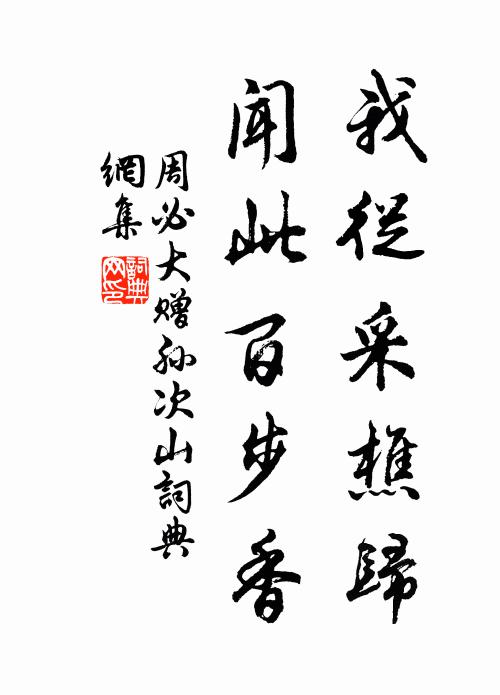 我從采樵歸
聞此百步香
周必大贈孫次山詞典
網集
詞典網印